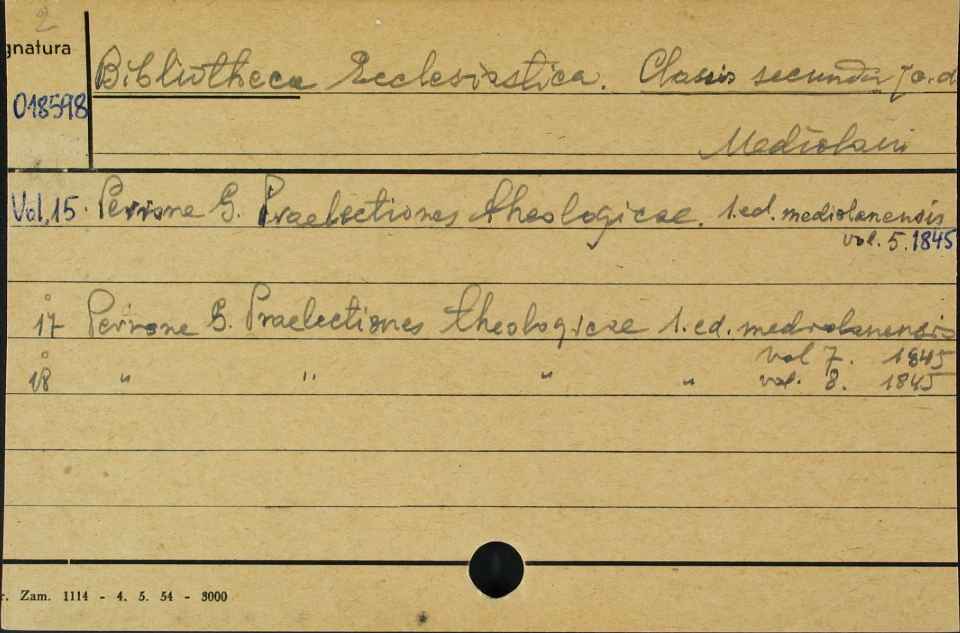 2
gnatura
Bibliotheca Ecclesiastica. Classis secunda
018598
Mediolani
Vol. 15. Perrone G. Praelectiones theologicae. 1. ed. mediolanensis
vol. 5. 1845
17 Perrone G. Praelectiones theologicae 1. ed. mediolanensis
vol 7. 1845
18 " " " " vol. 8. 1845
r. Zam. 1114 - 4. 5. 54 - 3000